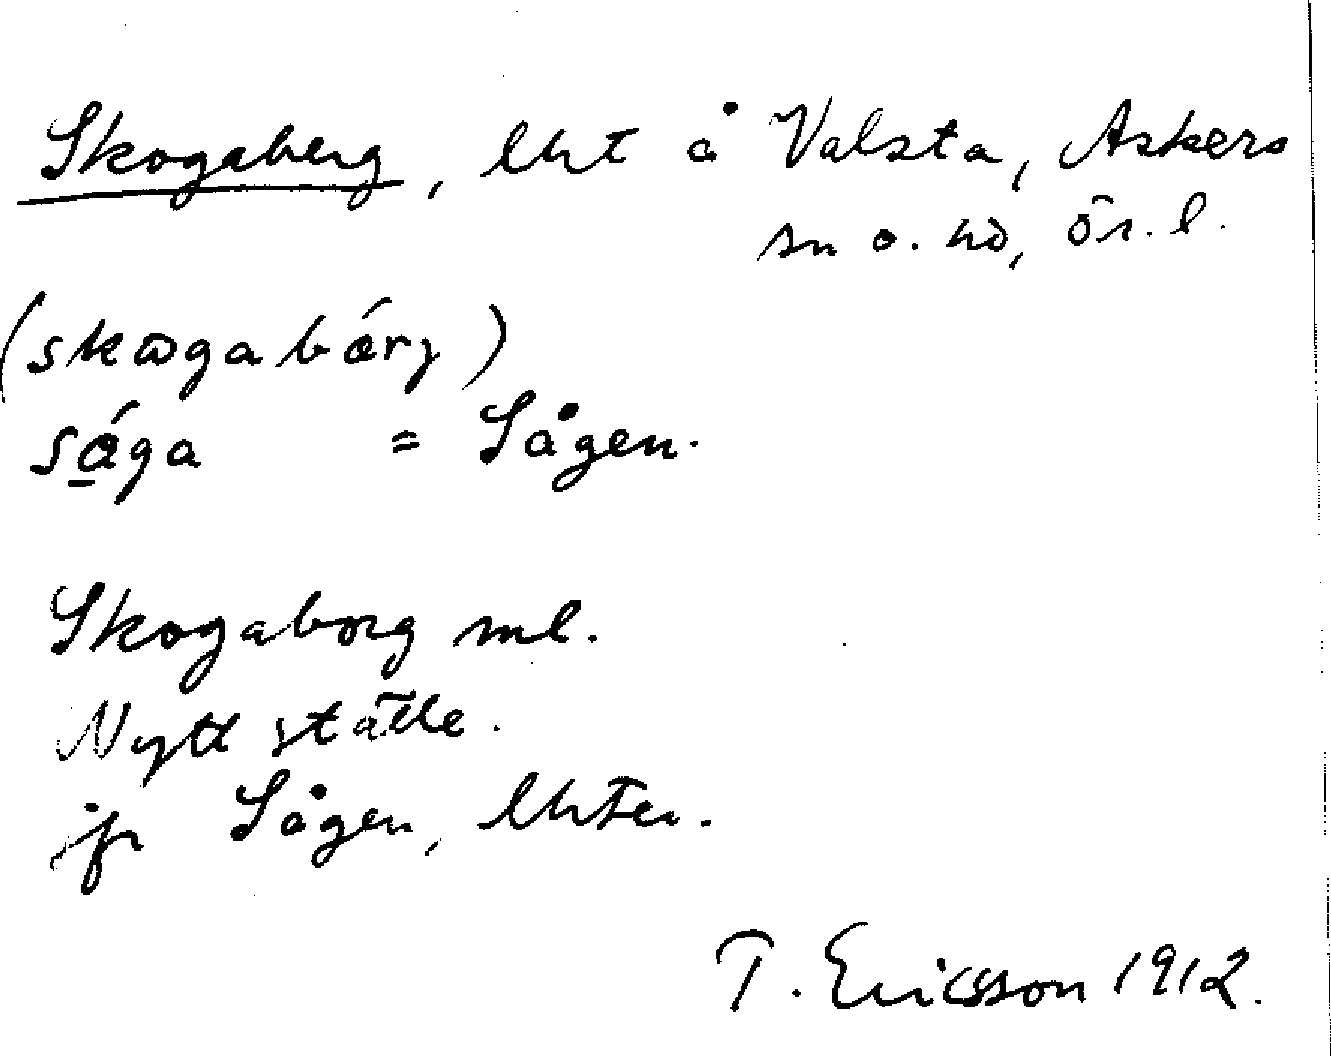 Skogaberg, lht å Valsta, Askers
sn o. hd, Ör. l.
(skogabárj)
sága = Sågen.
Skogaborg ml.
Nytt ställe.
jfr Sågen, lhten.
T. Ericsson 1912.